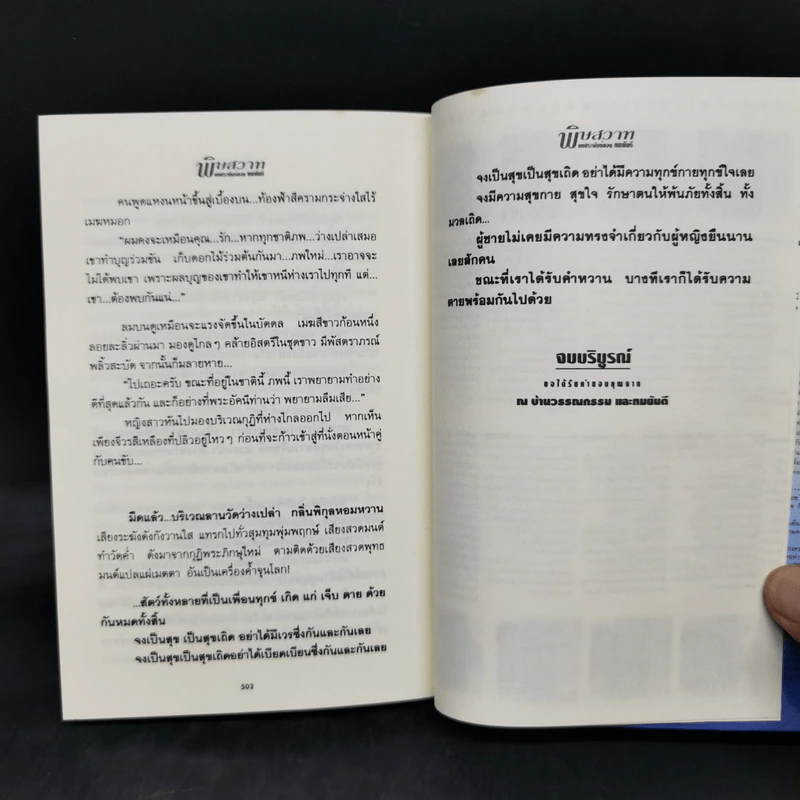 พิษสวาท
บทประพันธ์ของ ทมยันตี
คนพูดแหงนหน้าขึ้นสู่เบื้องบน...ท้องฟ้าสีครามกระจ่างใสไร้
เมฆหมอก
“ผมคงจะเหมือนคุณ...รัก...หากทุกชาติภพ...ว่างเปล่าเสมอ
เขาทำบุญร่วมขัน เก็บดอกไม้ร่วมต้นกันมา...ภพใหม่...เราอาจจะ
ไม่ได้พบเขา เพราะผลบุญของเขาทำให้เขาหนีห่างเราไปทุกที แต่...
เขา...ต้องพบกันแน่...”
ลมบนดูเหมือนจะแรงจัดขึ้นในบัดดล เมฆสีขาวก้อนหนึ่ง
ลอยละลิ่วผ่านมา มองดูไกลๆ คล้ายอิสตรีในชุดขาว มีพัสตราภรณ์
พลิ้วสะบัด จากนั้นก็มลายหาย...
“ไปเถอะครับ ขณะที่อยู่ในชาตินี้ ภพนี้ เราพยายามทำอย่าง
ดีที่สุดแล้วกัน และก็อย่างที่พระอัคนีท่านว่า พยายามลืมเสีย...”
หญิงสาวหันไปมองบริเวณกุฏิที่ห่างไกลออกไป หากเห็น
เพียงจีวรสีเหลืองที่ปลิวอยู่ไหวๆ ก่อนที่จะก้าวเข้าสู่ที่นั่งตอนหน้าคู่
กับคนขับ...
มืดแล้ว...บริเวณลานวัดว่างเปล่า กลิ่นพิกุลหอมหวาน
เสียงระฆังดังกังวานใส แทรกไปทั่วสุมทุมพุ่มพฤกษ์ เสียงสวดมนต์
ทำวัดค่ำ ดังมาจากกุฏิพระภิกษุใหม่ ตามติดด้วยเสียงสวดพุทธ
มนต์แปลแผ่เมตตา อันเป็นเครื่องค้ำจุนโลก!
...สัตว์ทั้งหลายที่เป็นเพื่อนทุกข์ เกิด แก่ เจ็บ ตาย ด้วย
กันหมดทั้งสิ้น
จงเป็นสุข เป็นสุขเถิด อย่าได้มีเวรซึ่งกันและกันเลย
จงเป็นสุขเป็นสุขเถิดอย่าได้เบียดเบียนซึ่งกันและกันเลย
502
พิษสวาท
บทประพันธ์ของ ทมยันตี
จงเป็นสุขเป็นสุขเถิด อย่าได้มีความทุกข์กายทุกข์ใจเลย
จงมีความสุขกาย สุขใจ รักษาตนให้พ้นภัยทั้งสิ้น ทั้ง
มวลเถิด...
ผู้ชายไม่เคยมีความทรงจำเกี่ยวกับผู้หญิงยืนนาน
เลยสักคน
ขณะที่เราได้รับคำหวาน บางทีเราก็ได้รับความ
ตายพร้อมกันไปด้วย
จบบริบูรณ์
ขอได้รับคำขอบคุณจาก
ณ บ้านวรรณกรรม และทมยันตี